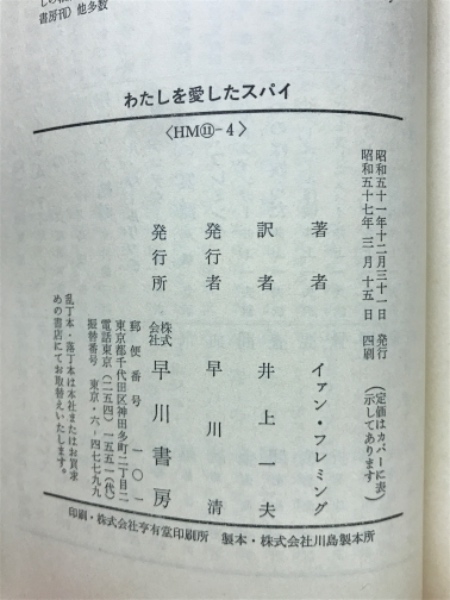 書房刊）他多数
わたしを愛したスパイ
〈HM⑪-4〉
昭和五十一年十二月三十一日 発行
昭和五十七年 三月 十五日 四刷
（定価はカバーに表示してあります）
著者 イアン・フレミング
訳者 井上一夫
発行者 早川 清
発行所 株式会社 早川書房
郵便番号 一〇一
東京都千代田区神田多町二丁目二
電話東京（二五四）一五五一（代）
振替番号 東京・六-四七七九九
乱丁本・落丁本は本社またはお買求
めの書店にてお取替えいたします。
印刷・株式会社亨有堂印刷所 製本・株式会社川島製本所